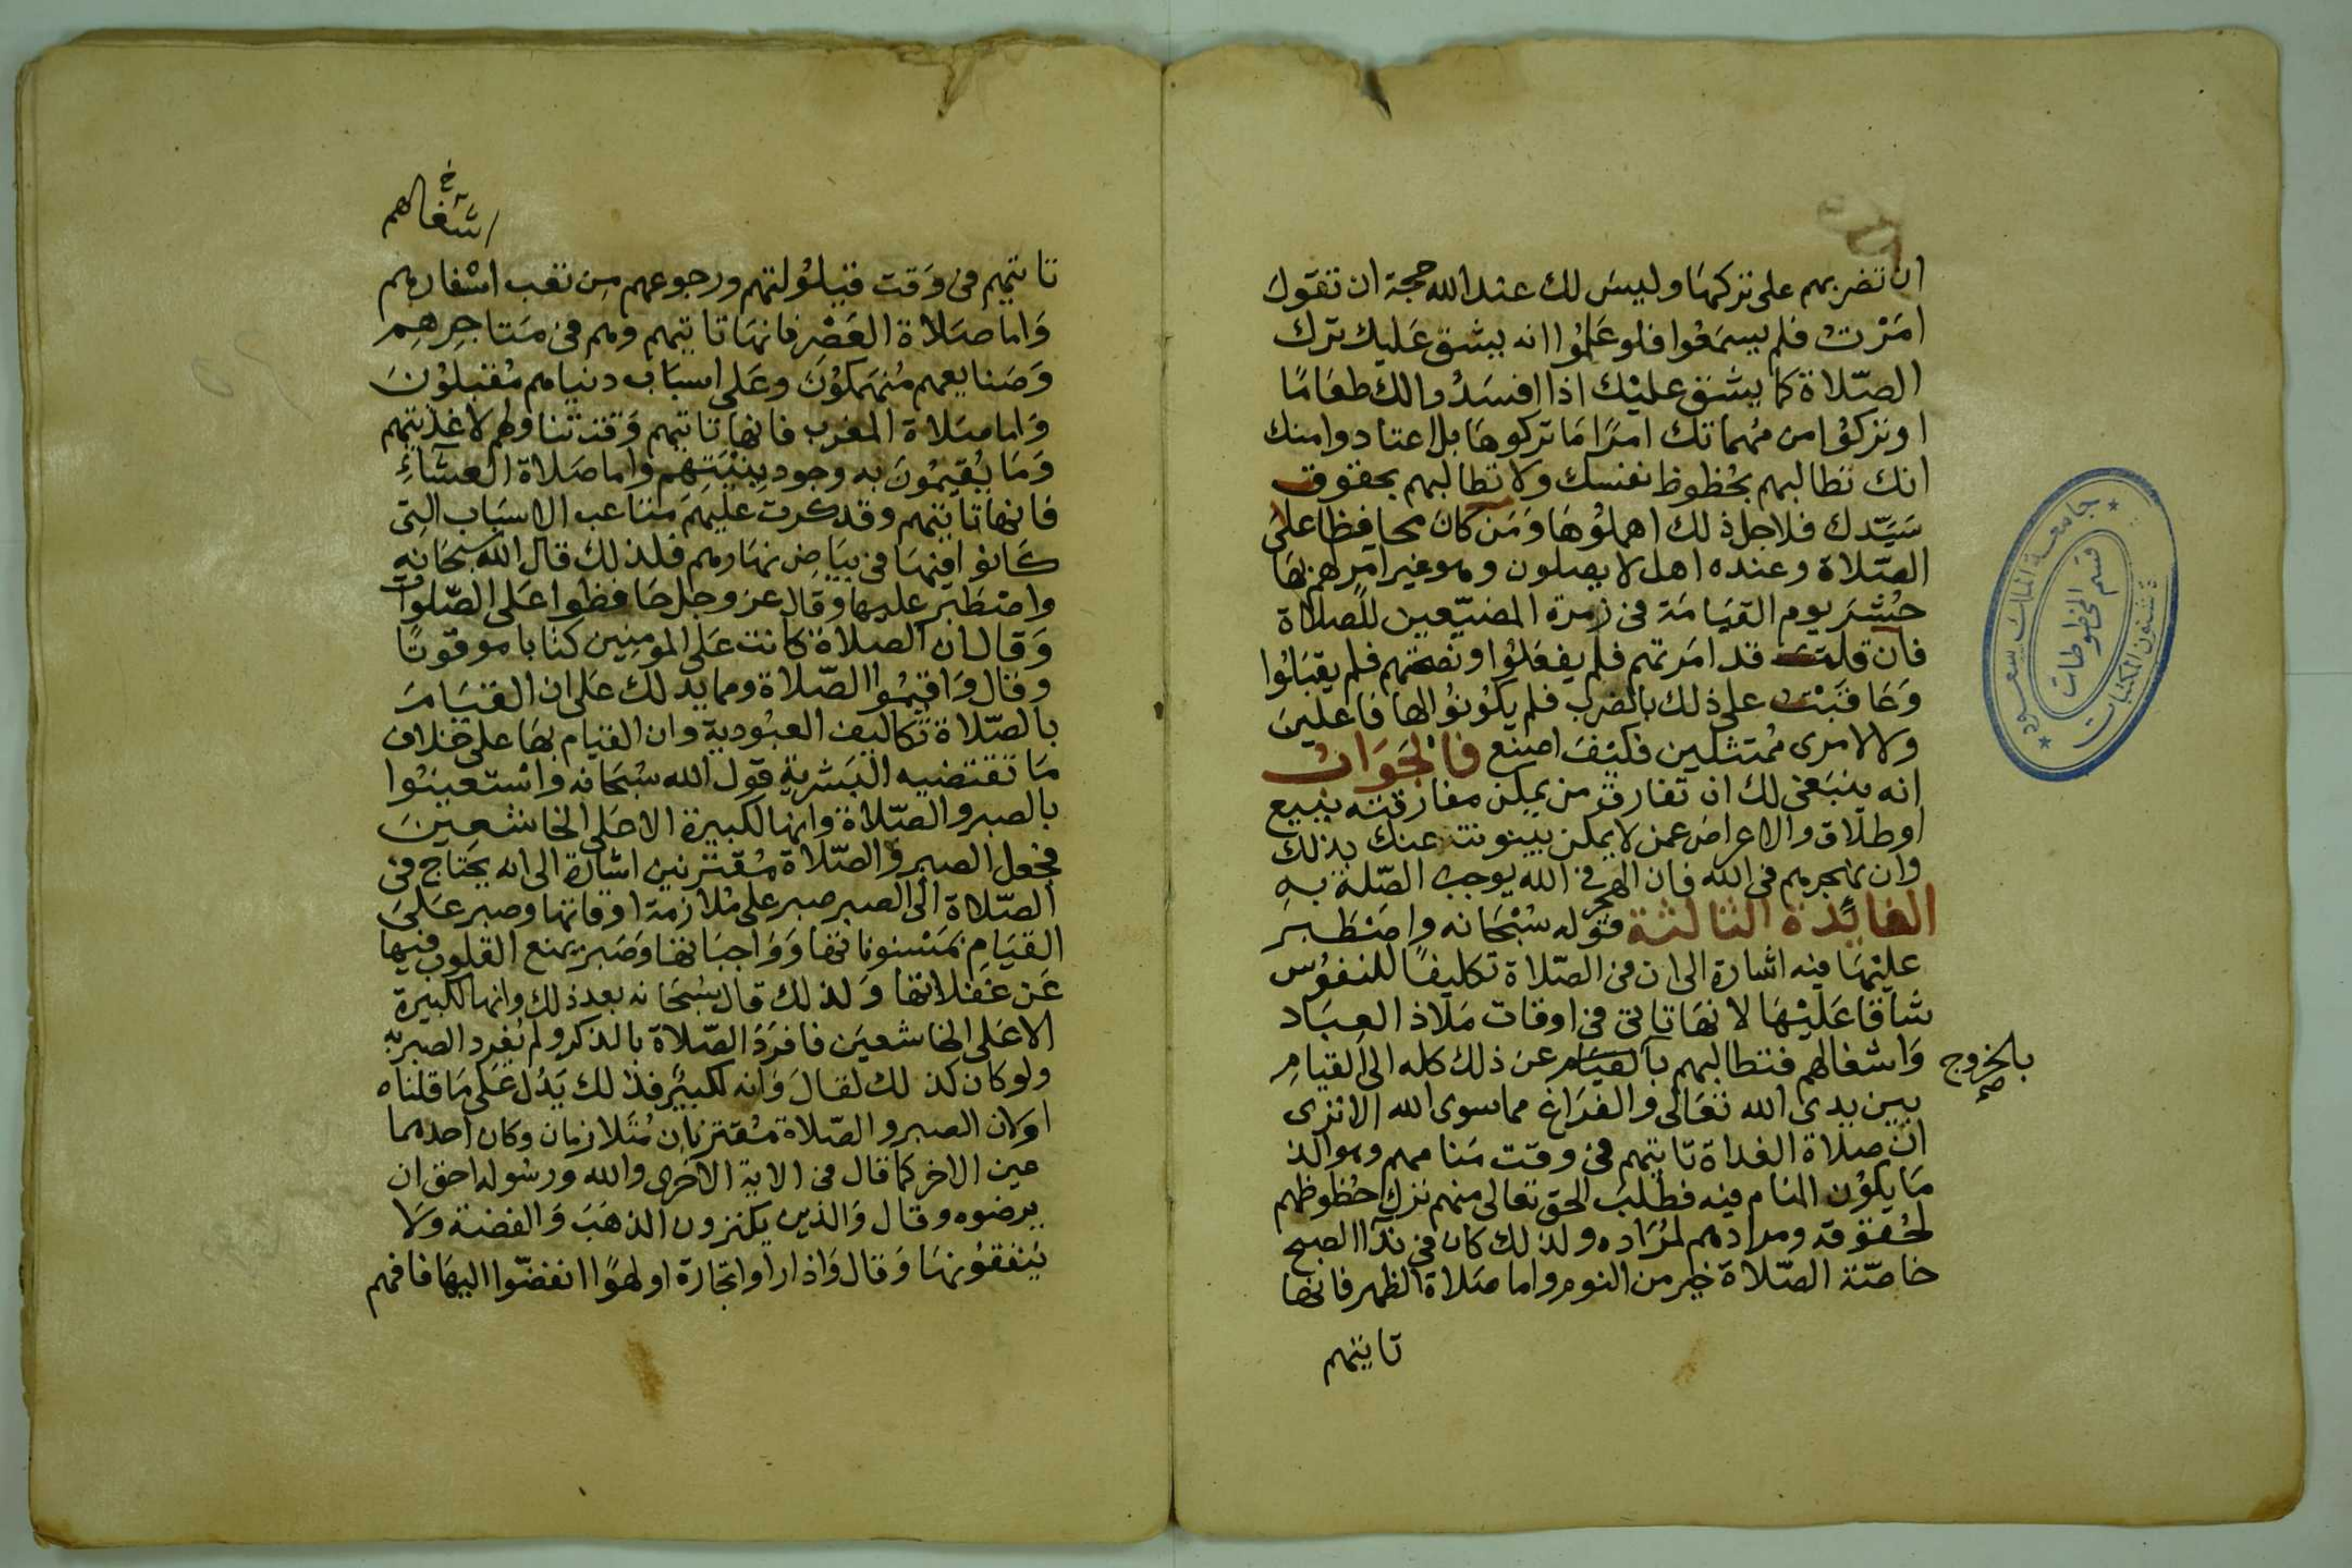 ان تضربهم على تركها وليس لك عند الله حجة ان تقول
امَرْتُ فلم يسمَعُوا فلو عَلِمُوا انه يشق عَليك ترك
الصّلاة كما يشق عليْك اذا افسَدُوا لك طعَامًا
او تركوُا من مُهماتك امرًا مَا تركوهَا بل اعتادوا منك
انك تطالبهم بحُظوظ نفسك ولا تطالبهم بحقوق
سَيّدك فلاجل ذلك اهملوُهَا وَمَن كانَ محافظا على
الصّلاة وعنده اهل لا يصلون وهو غير امِرهم بهَا
حُشِرَ يوم القيَامَة في زمرة المضيّعين للصلاة
فان قلت قد امَرتهم فلم يفعَلوُا ونصحتهم فلم يقبَلوُا
وَعَاقبْت على ذلك بالضرب فلم يكوُنوُا لها فاعلينَ
ولا لامرى مُمتثلين فكيْفَ اصنع فالجَوَابُ
انه ينبَغى لك ان تفارق من يمكن مفارقته ببيع
او طلاق والاعراض عمن لا يمكن بينونته عنك بذلك
وان تهجرهم فى الله فان الهجر فى الله يوجب الصّلة به
الفايدة الثالثة قوله سُبْحَانه واصْطَبِرَ
عليْهَا فيه اشارة الى ان فى الصّلاة تكليفًا للنفوُس
شاقا عَليْهَا لانهَا تاتى فى اوقات مَلاذ العِبَاد
وَاشغالهم فتطالبهم بالقيام عنَ ذلك كله الى القيامِ
بالخروج صح
بين يدى الله تعَالى والفرَاغ مما سوى الله الا ترى
ان صلاة الغداة تاتيهم فى وقت مَنامهم وهو الذ
مَا يكوُن المنَام فيه فطلبَ الحق تعالى منهم ترك حُظوظهم
لحُقوقه ومرادهم لمُرَاده ولذلك كان فى نِدَا الصبح
خاصّة الصّلاة خير من النوم واما صَلاة الظهر فانها
تاتيهم
جامعة الملك سعود
قسم المخطوطات
شئون المكتبات
اشغالهم خ
تاتيهم فى وَقت قيلوُلتهم ورجوعهم مِن تعب اسْفارهم
وَاما صَلاة العَصْرِ فانهَا تاتيهم وهم فى مَتاجِرِهِم
وَصَنايعهم مُنهمَكوُنَ وعَلى اسبَاب دنياهم مُقبلوُنَ
وَاما صَلاة المغرب فانها تاتيهم وَقت تناولهم لاغذيتهم
وَمَا يُقيمُونَ به وجود بِنْيَتِهم واما صَلاة العشَاءِ
فانها تاتيهم وقد كرت عليهم مَتاعب الاسبَاب التى
كَانوا فيهَا فى بيَاض نهَارهم فلذلك قال الله سبحَانه
واصْطَبر عليها وقال عز وجل حَافظوا عَلى الصّلوات
وَقال ان الصلاة كانت عَلى المومنِين كتابا موقوتًا
وقال وَاقيمُوا الصّلاة ومما يدلك عَلى ان القيَامَ
بالصّلاة تكاليف العبُودية وان القيام بهَا على خلاف
مَا تقتضيه البَشرية قول الله سُبحَانه وَاسْتعينُوا
بالصبر والصّلاة وانها لكبيرة الا عَلى الخاشعِينَ
فجعل الصبر والصّلاة مُقترنين اشارة الى انه يحتاج فى
الصّلاة الى الصبر صبر على مُلازمة اوقاتها وصبر عَلىَ
القيَامِ بمَسْنوناتها وَوَاجبَاتها وَصَبر يمنع القلوب فيها
عَن غفلاتها وَلذلك قال سُبحَانه بعد ذلك وانها لكبيرة
الا عَلى الخاشعيَن فافرَدَ الصّلاة بالذكر ولم يُفرد الصبر به
ولو كان كذلك لقالَ وَانه لكبيرٌ فذلك يَدُل عَلى مَا قلناه
او لان الصبر والصّلاة مُقترنان مُتلازمان وكان احدهما
عين الاخر كما قال فى الاية الاخرى والله ورسُوله احق ان
يرضوه وقال وَالذين يكنزون الذهَبَ وَالفضة وَلا
يُنفقوُنهَا وَقال وَاذا راوا تجارة او لهوًا انفضّوا اليهَا فافهم